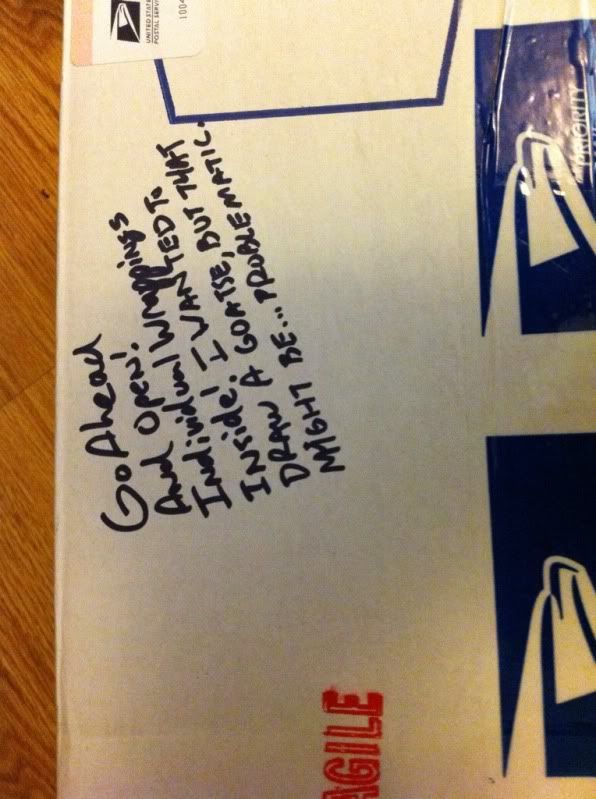 UNITED STATES
POSTAL SERVICE
1004
Go Ahead
And OPEN!
Individual Wrappings
Inside. I WANTED TO
DRAW A GOATSE, BUT THAT
MIGHT BE... PROBLEMATIC.
PRIORITY
AGILE